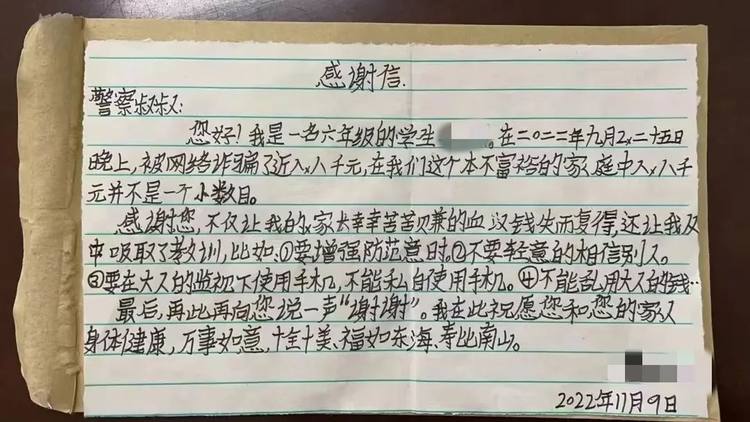 感谢信.
警察叔叔:
您好!我是一名六年级的学生 。在二〇二二年九月二十五日
晚上,被网络诈骗了近八千元,在我们这个本不富裕的家庭中八千
元并不是一个小数目。
感谢您,不仅让我的家长辛辛苦苦赚的血汉钱失而复得,还让我从
中吸取了教训,比如:①要增强防范意时②不要轻意的相信别人。
③要在大人的监视下使用手机,不能私自使用手机。④不能乱用大人的钱…
最后,再此再向您说一声“谢谢”。我在此祝愿您和您的家人
身体健康,万事如意,十全十美、福如东海、寿比南山。
2022年11月9日